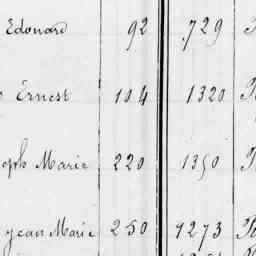 Edouard 92 729
Ernest 104 1320
eph Marie 220 1350
Jean Marie 250 1273